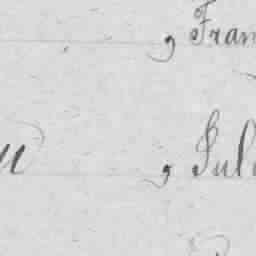 , Fran
u , Jul